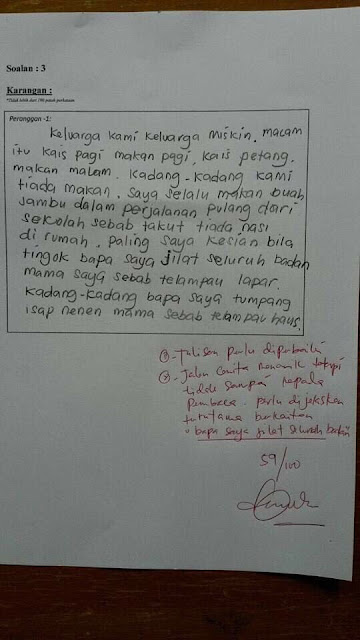 Soalan : 3
Karangan :
*Tidak lebih dari 100 patah perkataan
Perenggan -1:
Keluarga kami keluarga miskin. macam
itu kais pagi makan pagi, kais petang.
makan malam. Kadang-kadang kami
tiada makan. Saya selalu makan buah
jambu dalam perjalanan pulang dari
sekolah sebab takut tiada nasi
di rumah. Paling saya kesian bila
tingok bapa saya jilat seluruh badan
mama saya sebab telampau lapar.
Kadang-kadang bapa saya tumpang
isap nenen mama sebab telampau haus.
- Tulisan perlu diperbaiki
- Jalan cerita menarik tetapi
tidak sampai kepada
pembaca. perlu dijelaskan
terutama berkaitan
" bapa saya jilat seluruh badan"
59/100